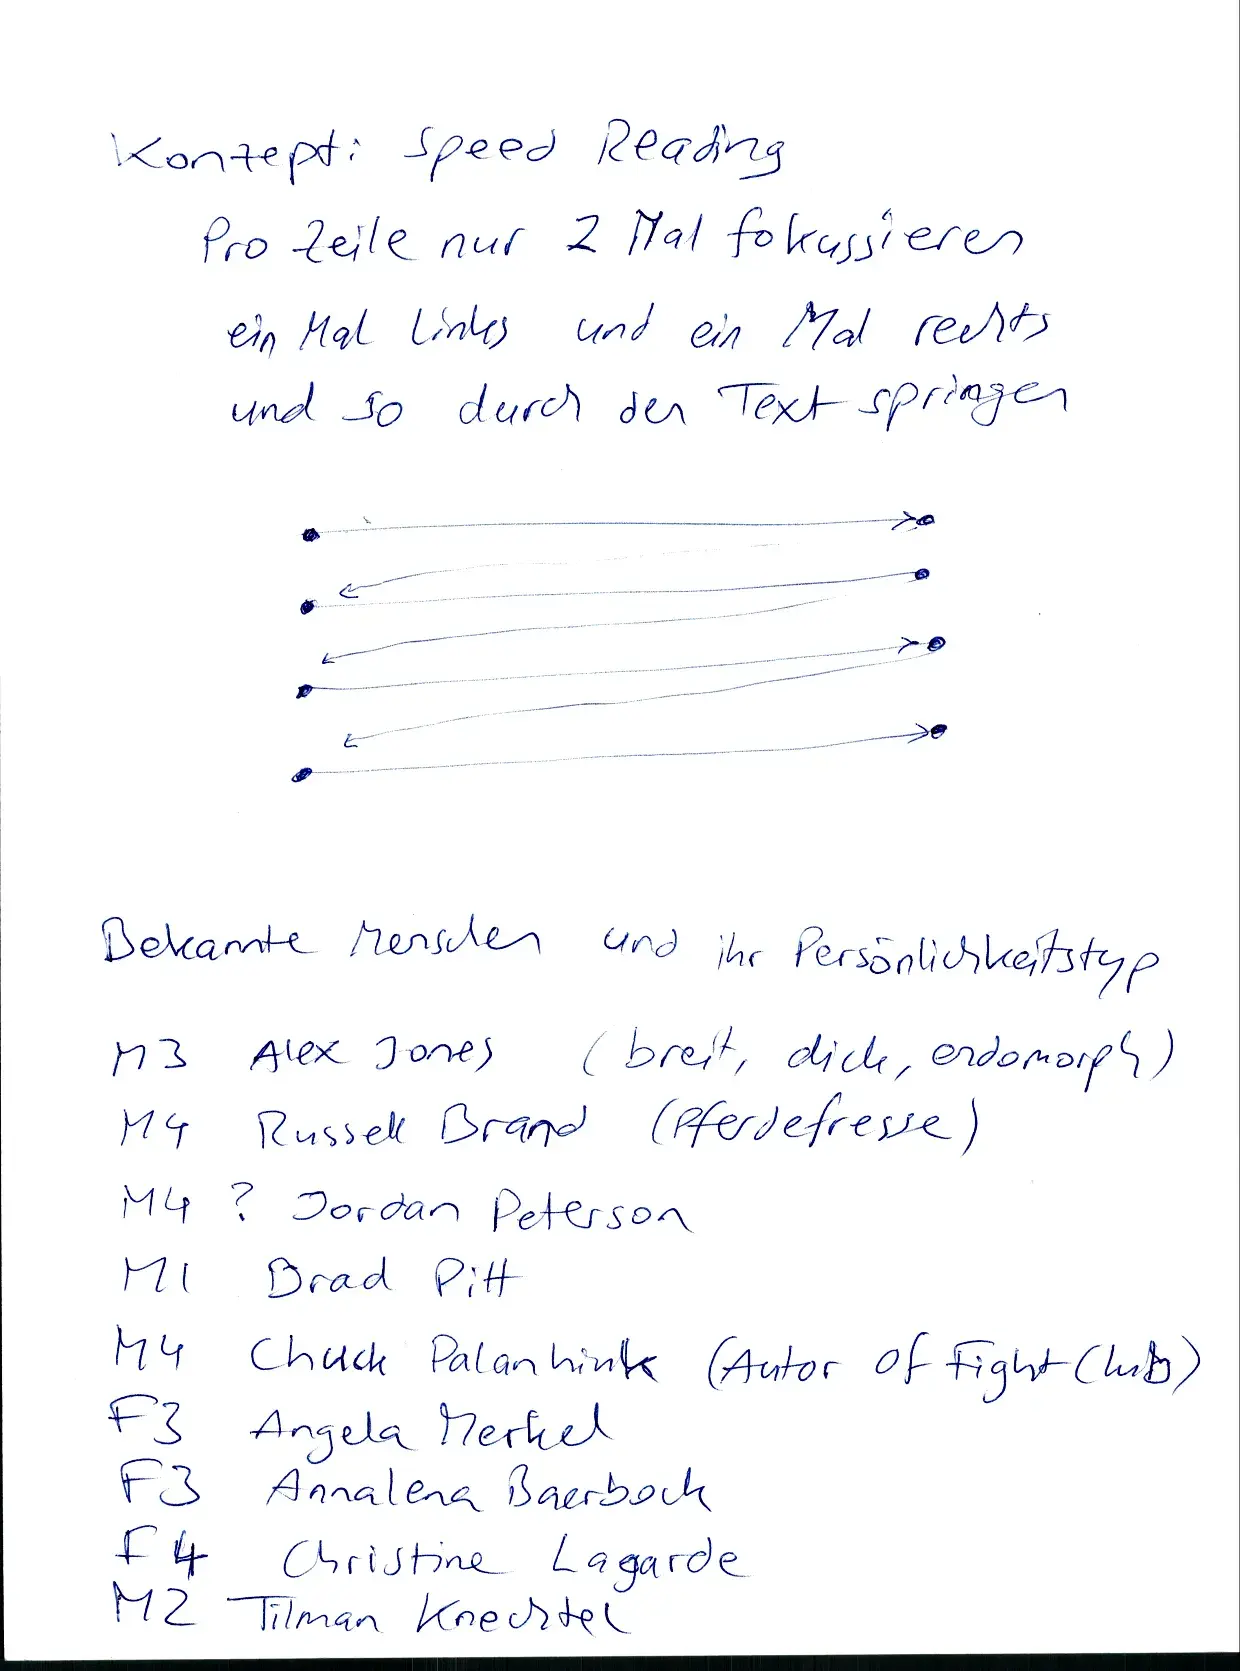 Konzept: Speed Reading
Pro Zeile nur 2 Mal fokussieren
ein Mal Links und ein Mal rechts
und so durch den Text springen
Bekannte Menschen und ihr Persönlichkeitstyp
M3 Alex Jones (breit, dick, endomorph)
M4 Russell Brand (Pferdefresse)
M4 ? Jordan Peterson
M1 Brad Pitt
M4 Chuck Palanhink (Autor of Fight Club)
F3 Angela Merkel
F3 Annalena Baerbock
F4 Christine Lagarde
M2 Tilman Knechtel